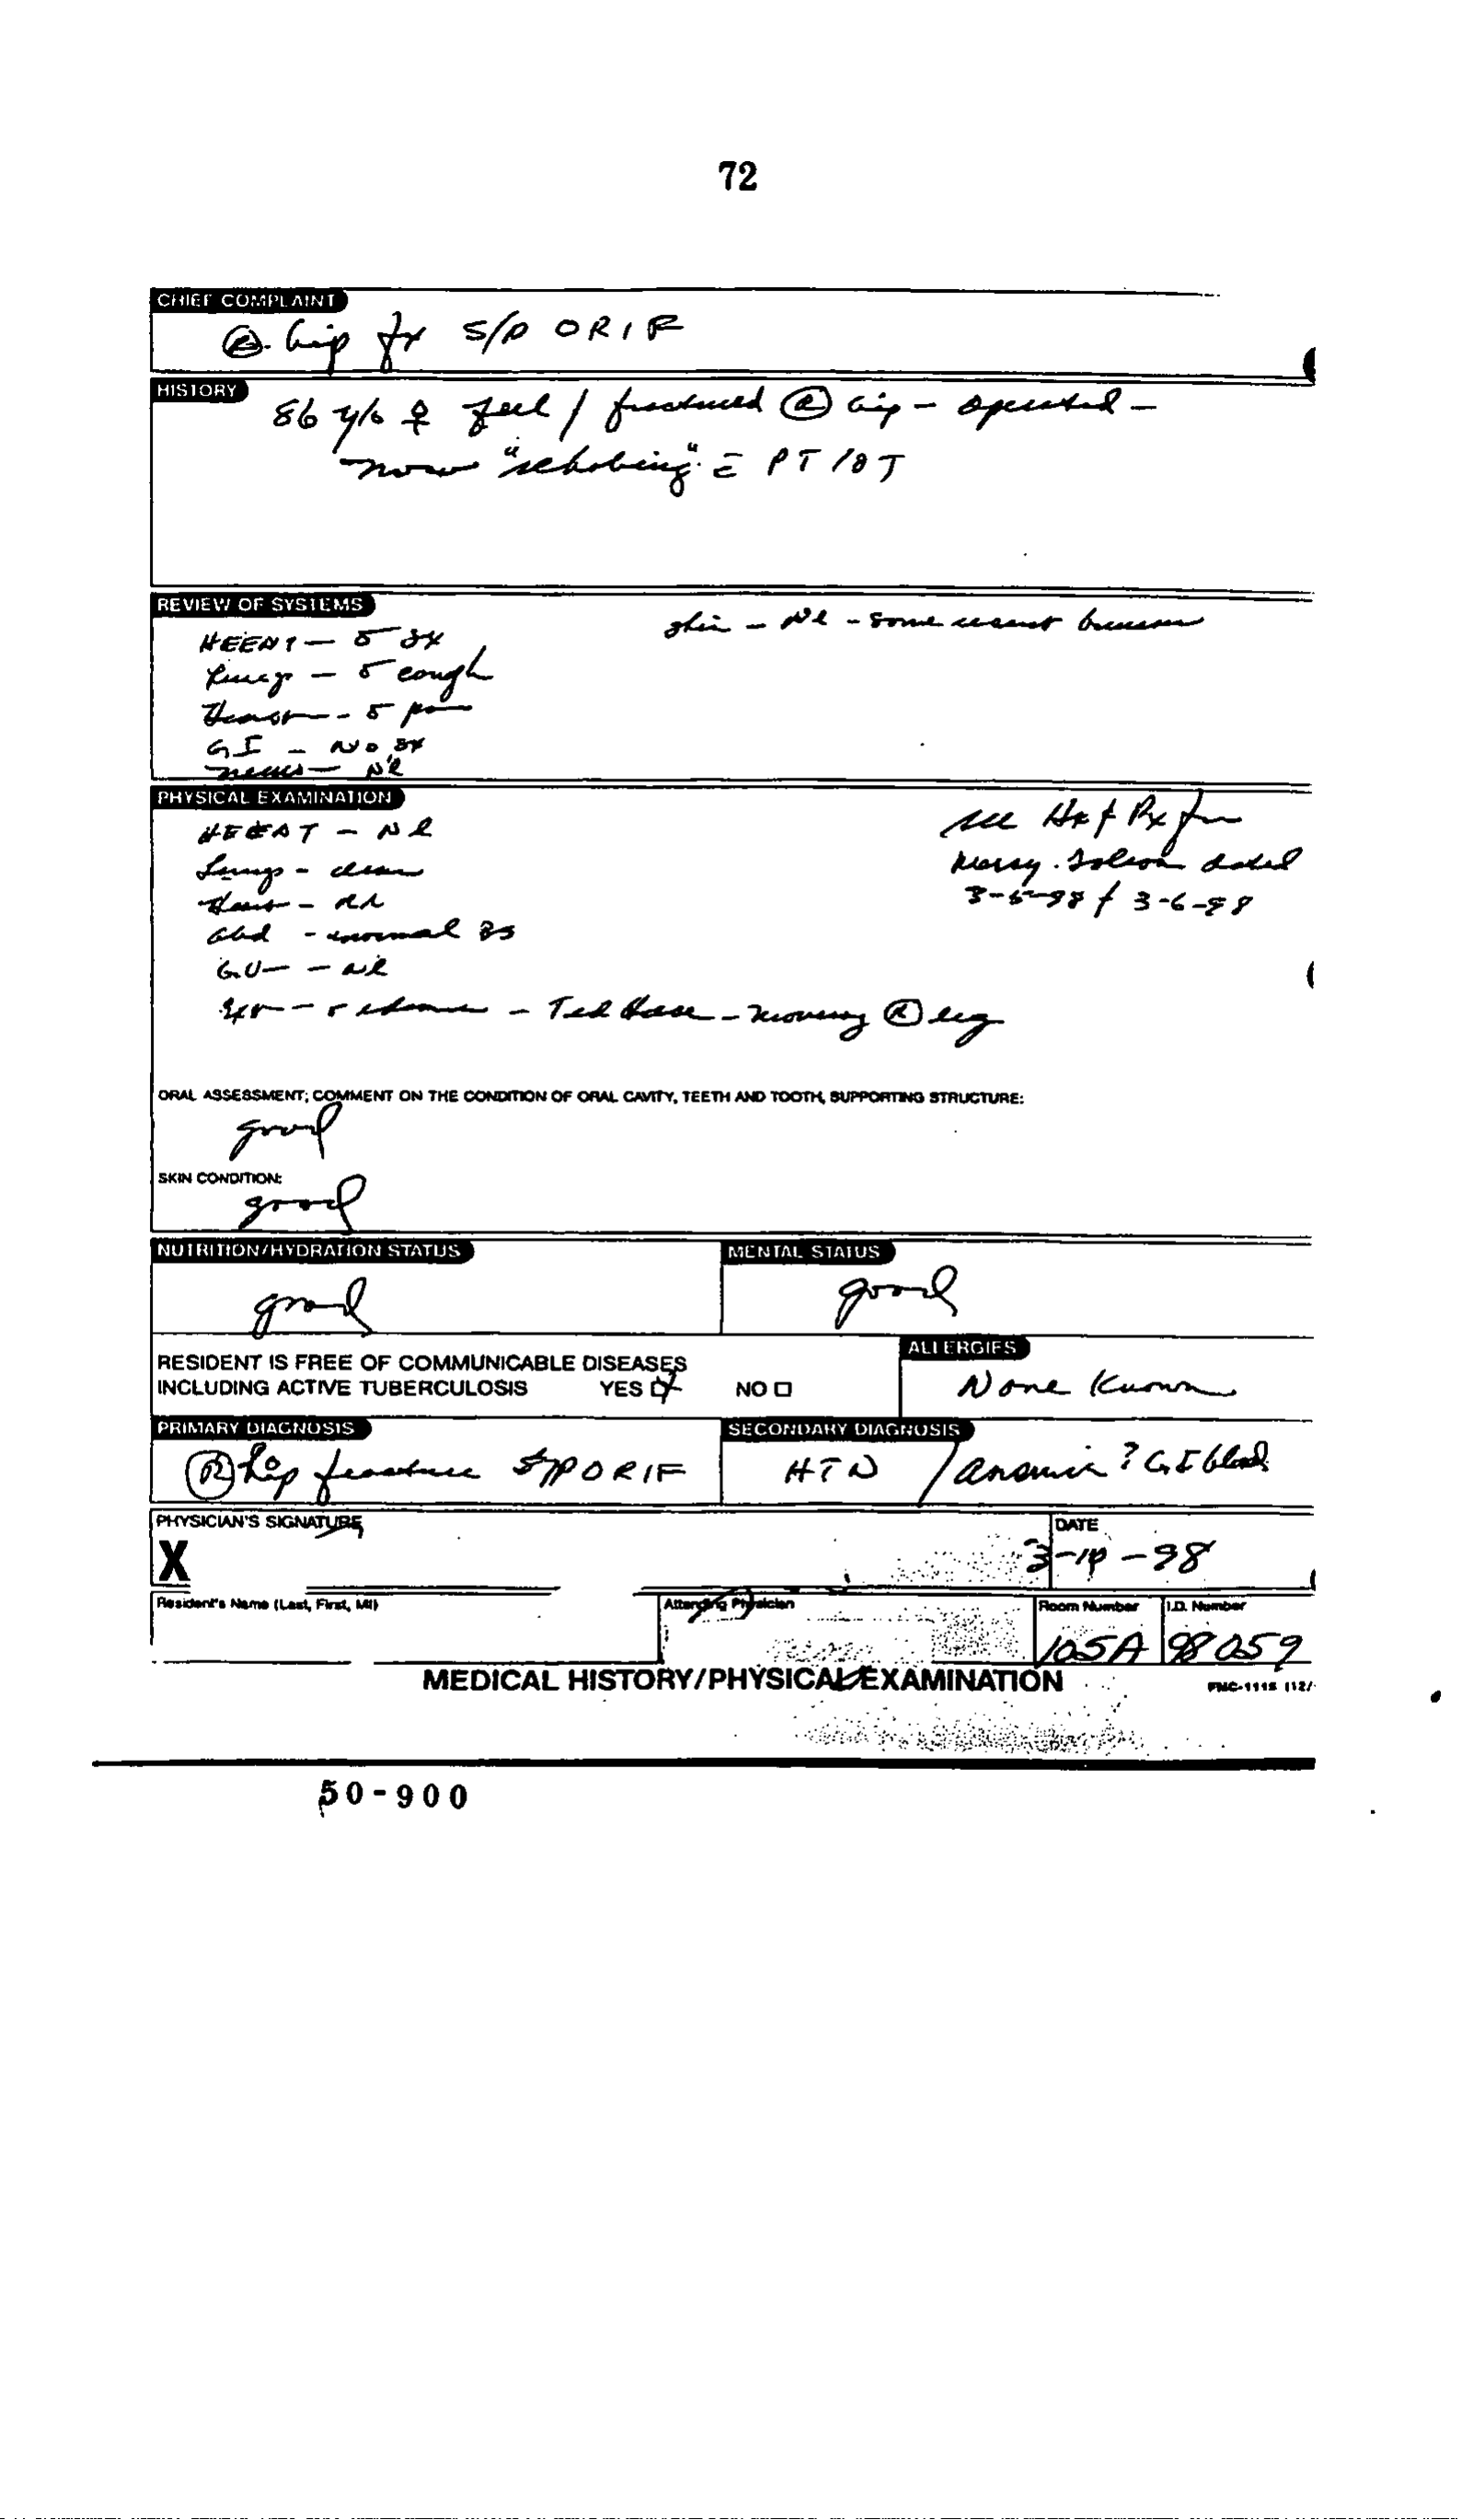 72
CHIEF COMPLAINT
Ⓡ hip fx s/p ORIF
HISTORY
86 y/o ♀ fell / fractured Ⓡ hip - operated -
now "rehabing" c̄ PT/OT
REVIEW OF SYSTEMS
HEENT - ō sx
skin - Nl - some recent bruises
Lungs - ō cough
Heart - ō pain
GI - No sx
neuro - Nl
PHYSICAL EXAMINATION
HEENT - Nl
see Hx & Px from
Mercy dated
Lungs - clear
3-5-98 & 3-6-98
Heart - RR
abd - normal BS
G.U - Nl
Ext - ō edema - Ted Hose - moving Ⓡ leg
ORAL ASSESSMENT; COMMENT ON THE CONDITION OF ORAL CAVITY, TEETH AND TOOTH, SUPPORTING STRUCTURE:
good
SKIN CONDITION:
good
NUTRITION/HYDRATION STATUS
MENTAL STATUS
good
good
RESIDENT IS FREE OF COMMUNICABLE DISEASES
INCLUDING ACTIVE TUBERCULOSIS YES NO
ALLERGIES
None Known
PRIMARY DIAGNOSIS
SECONDARY DIAGNOSIS
Ⓡ hip fracture S/P ORIF
HTN / anemia ? GI bleed
PHYSICIAN'S SIGNATURE
DATE
X
3-10-98
Resident's Name (Last, First, MI)
Attending Physician
Room Number
I.D. Number
105A
98059
MEDICAL HISTORY/PHYSICAL EXAMINATION
FMC-111S (12/
50-900